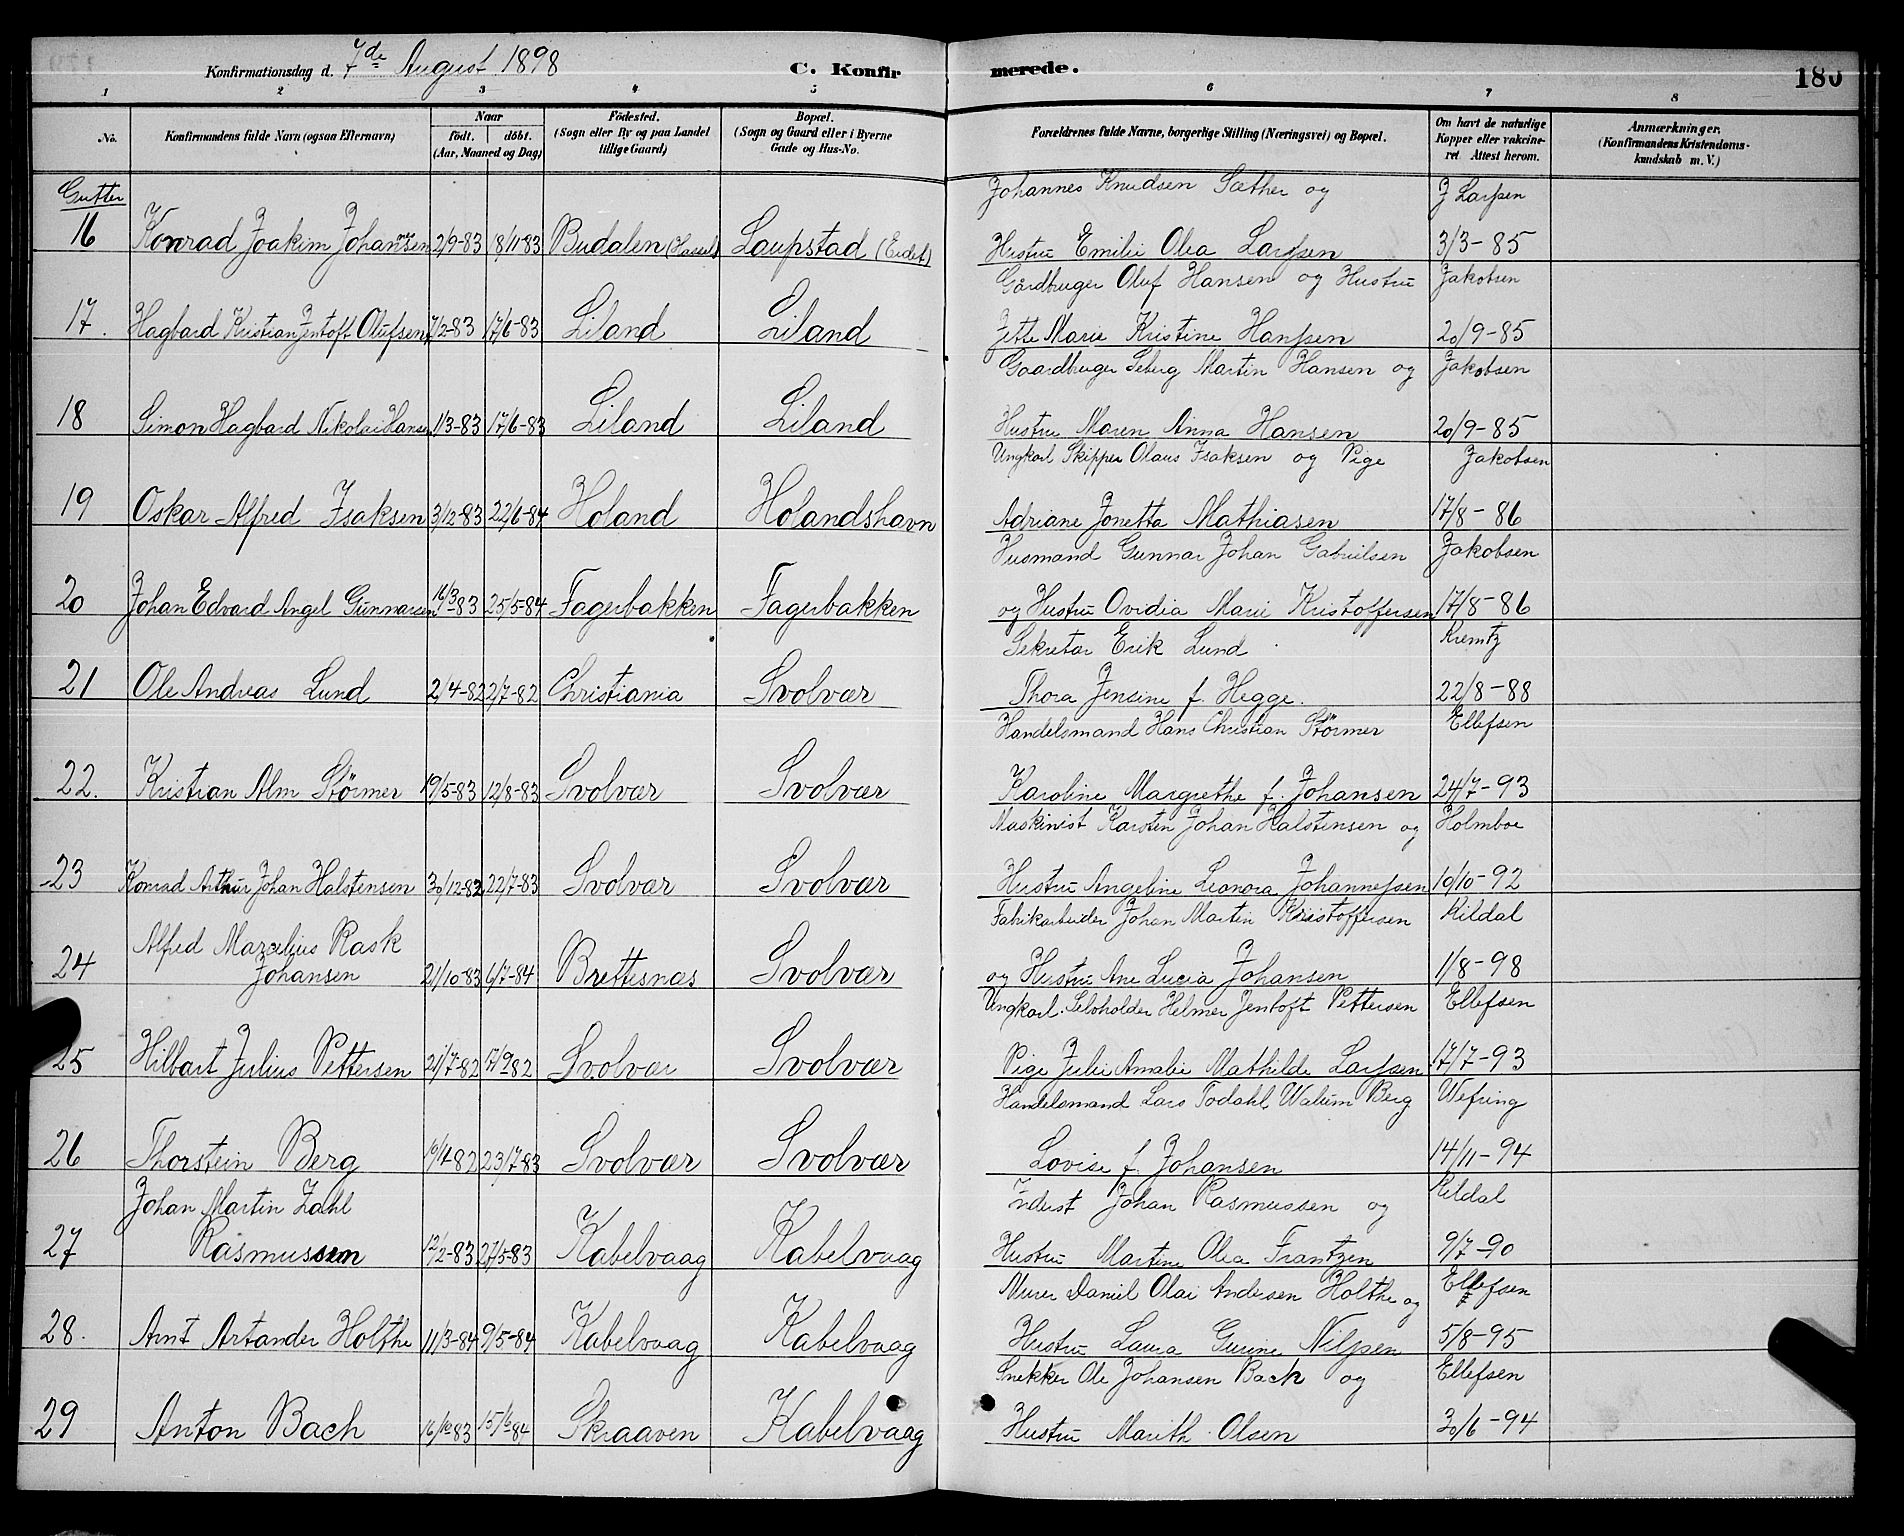 Konfirmationsdag d. 7de August 1898 C. Konfirmerede. 180
1 2 3 4 5 6 7 8
No. Konfirmandens fulde Navn (ogsaa Efternavn) Naar født. døbt. (Aar, Maaned og Dag) Fødested. (Sogn eller By og paa Landet tillige Gaard) Bopæl. (Sogn og Gaard eller i Byerne Gade og Hus-No. Forældrenes fulde Navne, borgerlige Stilling (Næringsvei) og Bopæl. Om havt de naturlige Kopper eller vakcineret Attest herom. Anmærkninger. (Konfirmandens Kristendomskundskab m. V.)
Gutter
Johannes Knudsen Sæther og J Larssen
16 Konrad Joakim Johansen 2/9-83 18/11-83 Budalen Laupstad (Eidet) Hustru Emilie Olea Larssen 3/3-85
Gårdbruger Oluf Hansen og Hustru Jakobsen
17. Hagbard Kristian Jentoft Olufsen 7/2-83 17/6-83 Liland Liland Jette Marie Kristine Hanssen 20/9-85
Gaardbruger Seberg Martin Hansen og Jakobsen
18 Simon Hagbard Nikolai Hansen 1/3-83 17/6-83 Liland Liland Hustru Maren Anna Hansen 20/9-85
Ungkarl Skipper Olaus Isaksen og Pige Jakobsen
19 Oskar Alfred Isaksen 3/12-83 22/6-84 Holand Holandshavn Adriane Jonetta Mathiasen 17/8-86
Husmand Gunnar Johan Gabrielsen Jakobsen
20 Johan Edvard Angel Gunnarsen 16/3 83 25/5-84 Fagerbakken Fagerbakken og Hustru Ovidia Marie Kristoffersen 17/8-86
Sekretær Erik Lund Kremtz
21 Ole Andreas Lund 2/4-82 2/7-82 Christiania Svolvær Thora Jensine f. Hegge. 22/8-88
Handelsmand Hans Christian Störmer Ellefsen
22. Kristian Alm Störmer 19/5-83 12/8-83 Svolvær Svolvær Karoline Margrethe f. Johansen 24/7-93
Maskinist Karsten Johan Halstensen og Holmboe
23 Konrad Arthur Johan Halstensen 30/12-82 22/7-83 Svolvær Svolvær Hustru Angeline Leonora Johannessen 10/10-92
Fabrikarbeider Johan Martin Kristoffersen Kildal
Alfred Marcelius Rask
24 Johansen 21/10-83 6/7-84 Brettesnæs Svolvær og Hustru Ane Lucia Johansen 1/8-98
Ungkarl. Selvholder Helmer Jentoft Pettersen Ellefsen
25 Hilbart Julius Pettersen 21/7-82 17/9 82 Svolvær Svolvær Pige Julie Amalie Mathilde Larssen 17/7-93
Handelsmand Lars Todahl Walum Berg Wefring
26 Thorstein Berg 19/4 82 23/7-83 Svolvær Svolvær Lovise f. Johansen 14/11-94
Johan Martin Zahl Inderst Johan Rasmussen og Kildal
27 Rasmussen 12/2-83 27/5-83 Kabelvaag Kabelvaag Hustru Martine Olea Frantzen 9/7-90
Murer Daniel Olai Andersen Holthe og Ellefsen
28. Arnt Artander Holthe 11/3-84 9/5-84 Kabelvaag Kabelvaag Hustru Laura Gurine Nilssen 5/8-95
Snekker Ole Johansen Bach og Ellefsen
29 Anton Bach 16/10 83 15/6-84 Skraaven Kabelvaag Hustru Marith Olsen 30/6-94